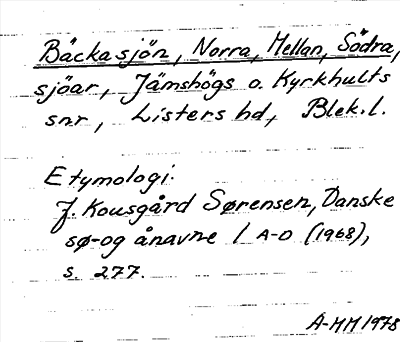 Bäckasjön, Norra, Mellan, Södra,
sjöar, Jämshögs o. Kyrkhults
snr, Listers hd, Blek.l.
Etymologi.
J. Kousgård Sørensen, Danske
sø- og ånavne 1 A-D (1968),
s. 277.
A-MM 1978